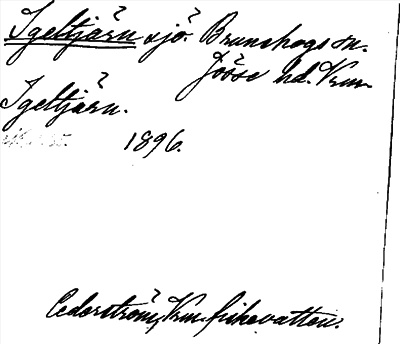 Igeltjärn sjö. Brunskogs sn.
Jösse hd. Vrm.
Igeltjärn.
1896.
Cederström, Vrm. fiskevatten.